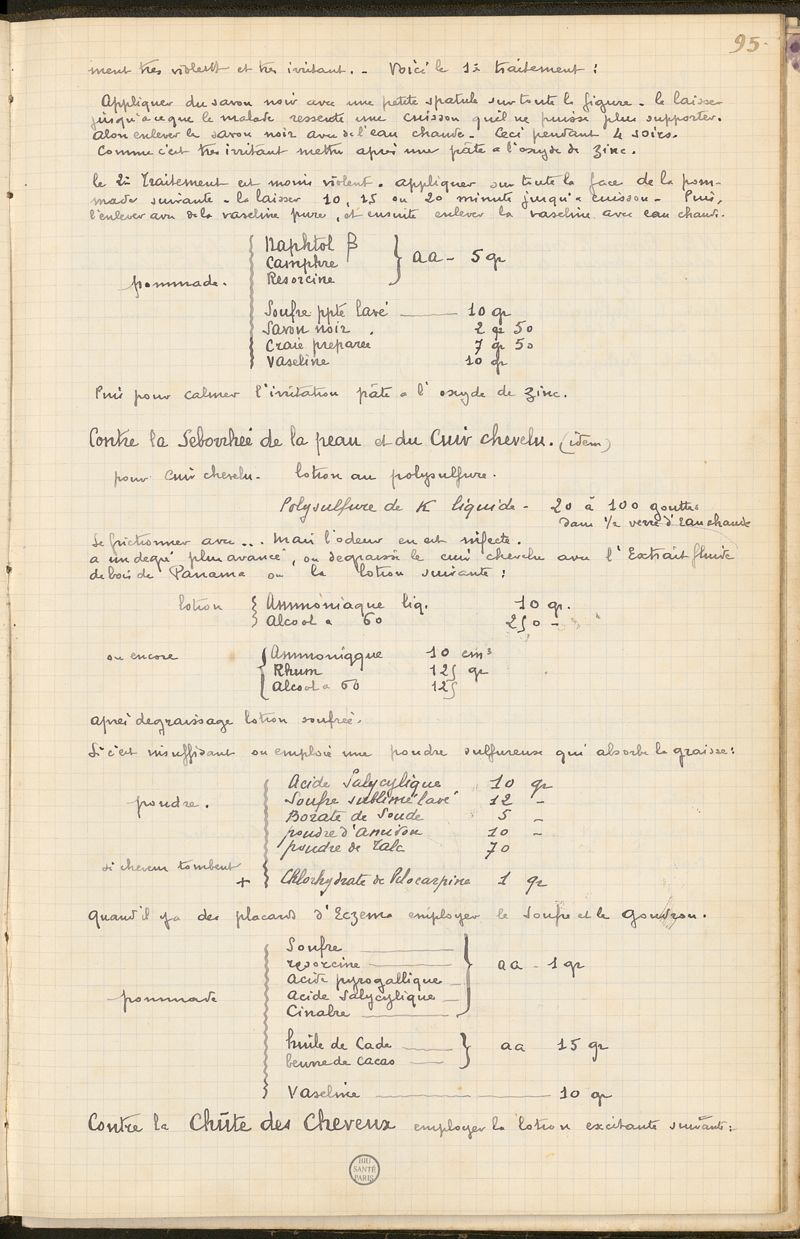 95.
ment très violent et très irritant. - Voici le 1er traitement :
Appliquer du savon noir avec une petite spatule sur toute la figure. le laisser
jusqu'à ce que le malade ressente une cuisson qu'il ne puisse plus supporter.
Alors enlever le savon noir avec de l'eau chaude. Ceci pendant 4 soirs.
Comme c'est très irritant mettre après une pâte a l'oxyde de zinc.
le 2e Traitement est moins violent. appliquer sur toute la face de la pom-
made suivante - la laisser 10, 15 ou 20 minute jusqu'a cuisson - Puis,
l'enlever avec de la vaseline pure, et ensuite enlever la vaseline avec eau chaude.
pommade.
Naphtol β
Camphre
Resorcine
aa - 5 gr
Soufre ppté lavé 10 gr
Savon noir 2 gr 50
Craie preparee 7 gr 50
Vaseline 10 gr
Puis pour calmer l'irritation pâte a l'oxyde de zinc.
Contre la Séborrhée de la peau et du Cuir chevelu. (idem)
pour cuir chevelu - lotion au polysulfure.
Polysulfure de K liquide - 20 à 100 gouttes
dans 1/2 verre d'eau chaude
Se frictionner avec ... mais l'odeur en est infecte.
a un degré plus avancé, on dégraisse le cuir chevelu avec l'Extrait fluide
de bois de Panama ou la lotion suivante :
lotion
Ammoniaque liq. 10 gr.
Alcool a 60 250 -
ou encore
Ammoniaque 10 cm3
Rhum 125 gr
Alcool a 60 125
après degraissage lotion soufrée.
Si c'est insuffisant on emploie une poudre sulfureuse qui absorbe la graisse :
poudre.
Acide Salycylique 10 gr
Soufre sublimé lavé 12 -
Borate de Soude 5 -
poudre d'amidon 10 -
poudre de Talc 70
si cheveux tombent
+ Chlorhydrate de Pilocarpine 1 gr
Quand il y a des placards d'Eczema employer le Soufre et le goudron.
pommade
Soufre
resorcine
Acide pyrogallique
Acide Salycylique
Cinabre
aa - 1 gr
huile de Cade
beurre de cacao
aa 15 gr
Vaseline 10 gr
Contre la Chûte des Cheveux employer la lotion excitante suivante :
BIU
SANTÉ
PARIS